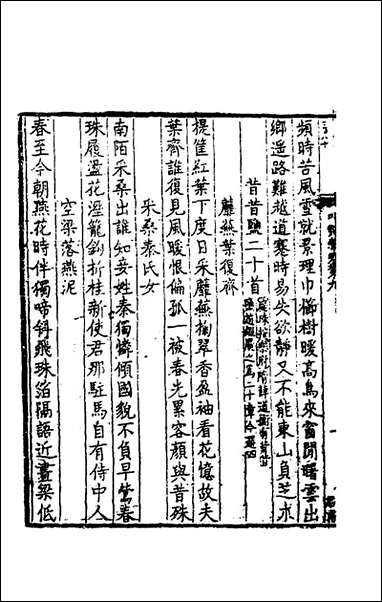 頻時苦風雪就景理巾櫛樹暖高鳥來窗閒曙雲出
鄉遥路難越道蹇時易失欲靜又不能東山負芝朮
昔昔鹽二十首
蘼蕪葉復齊
提筐紅葉下度日采蘼蕪掬翠香盈袖看花憶故夫
葉齊誰復見風暖恨偏孤一被春光累容顔與昔殊
采桑秦氏女
南陌采桑出誰知妾姓秦獨憐傾國貌不負早鶯春
珠履盪花溼籠鈎折桂新使君那駐馬自有侍中人
空梁落燕泥
春至今朝燕花時伴獨啼斜飛珠箔隔語近畫梁低